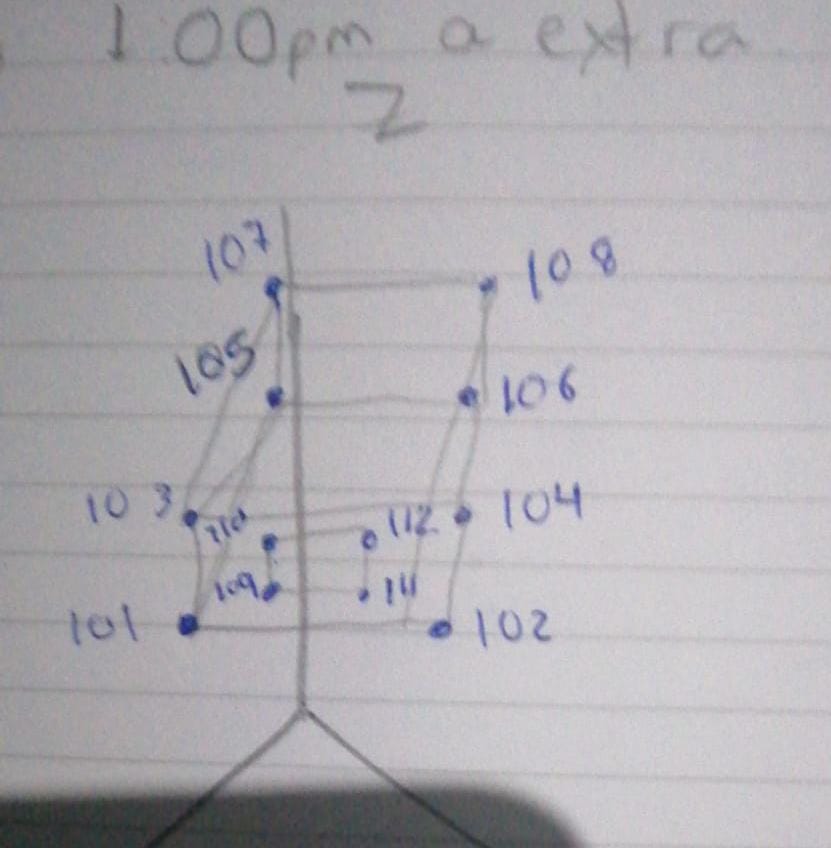 1:00pm a extra
Z
107
108
105
106
103
104
110
112
109
111
101
102